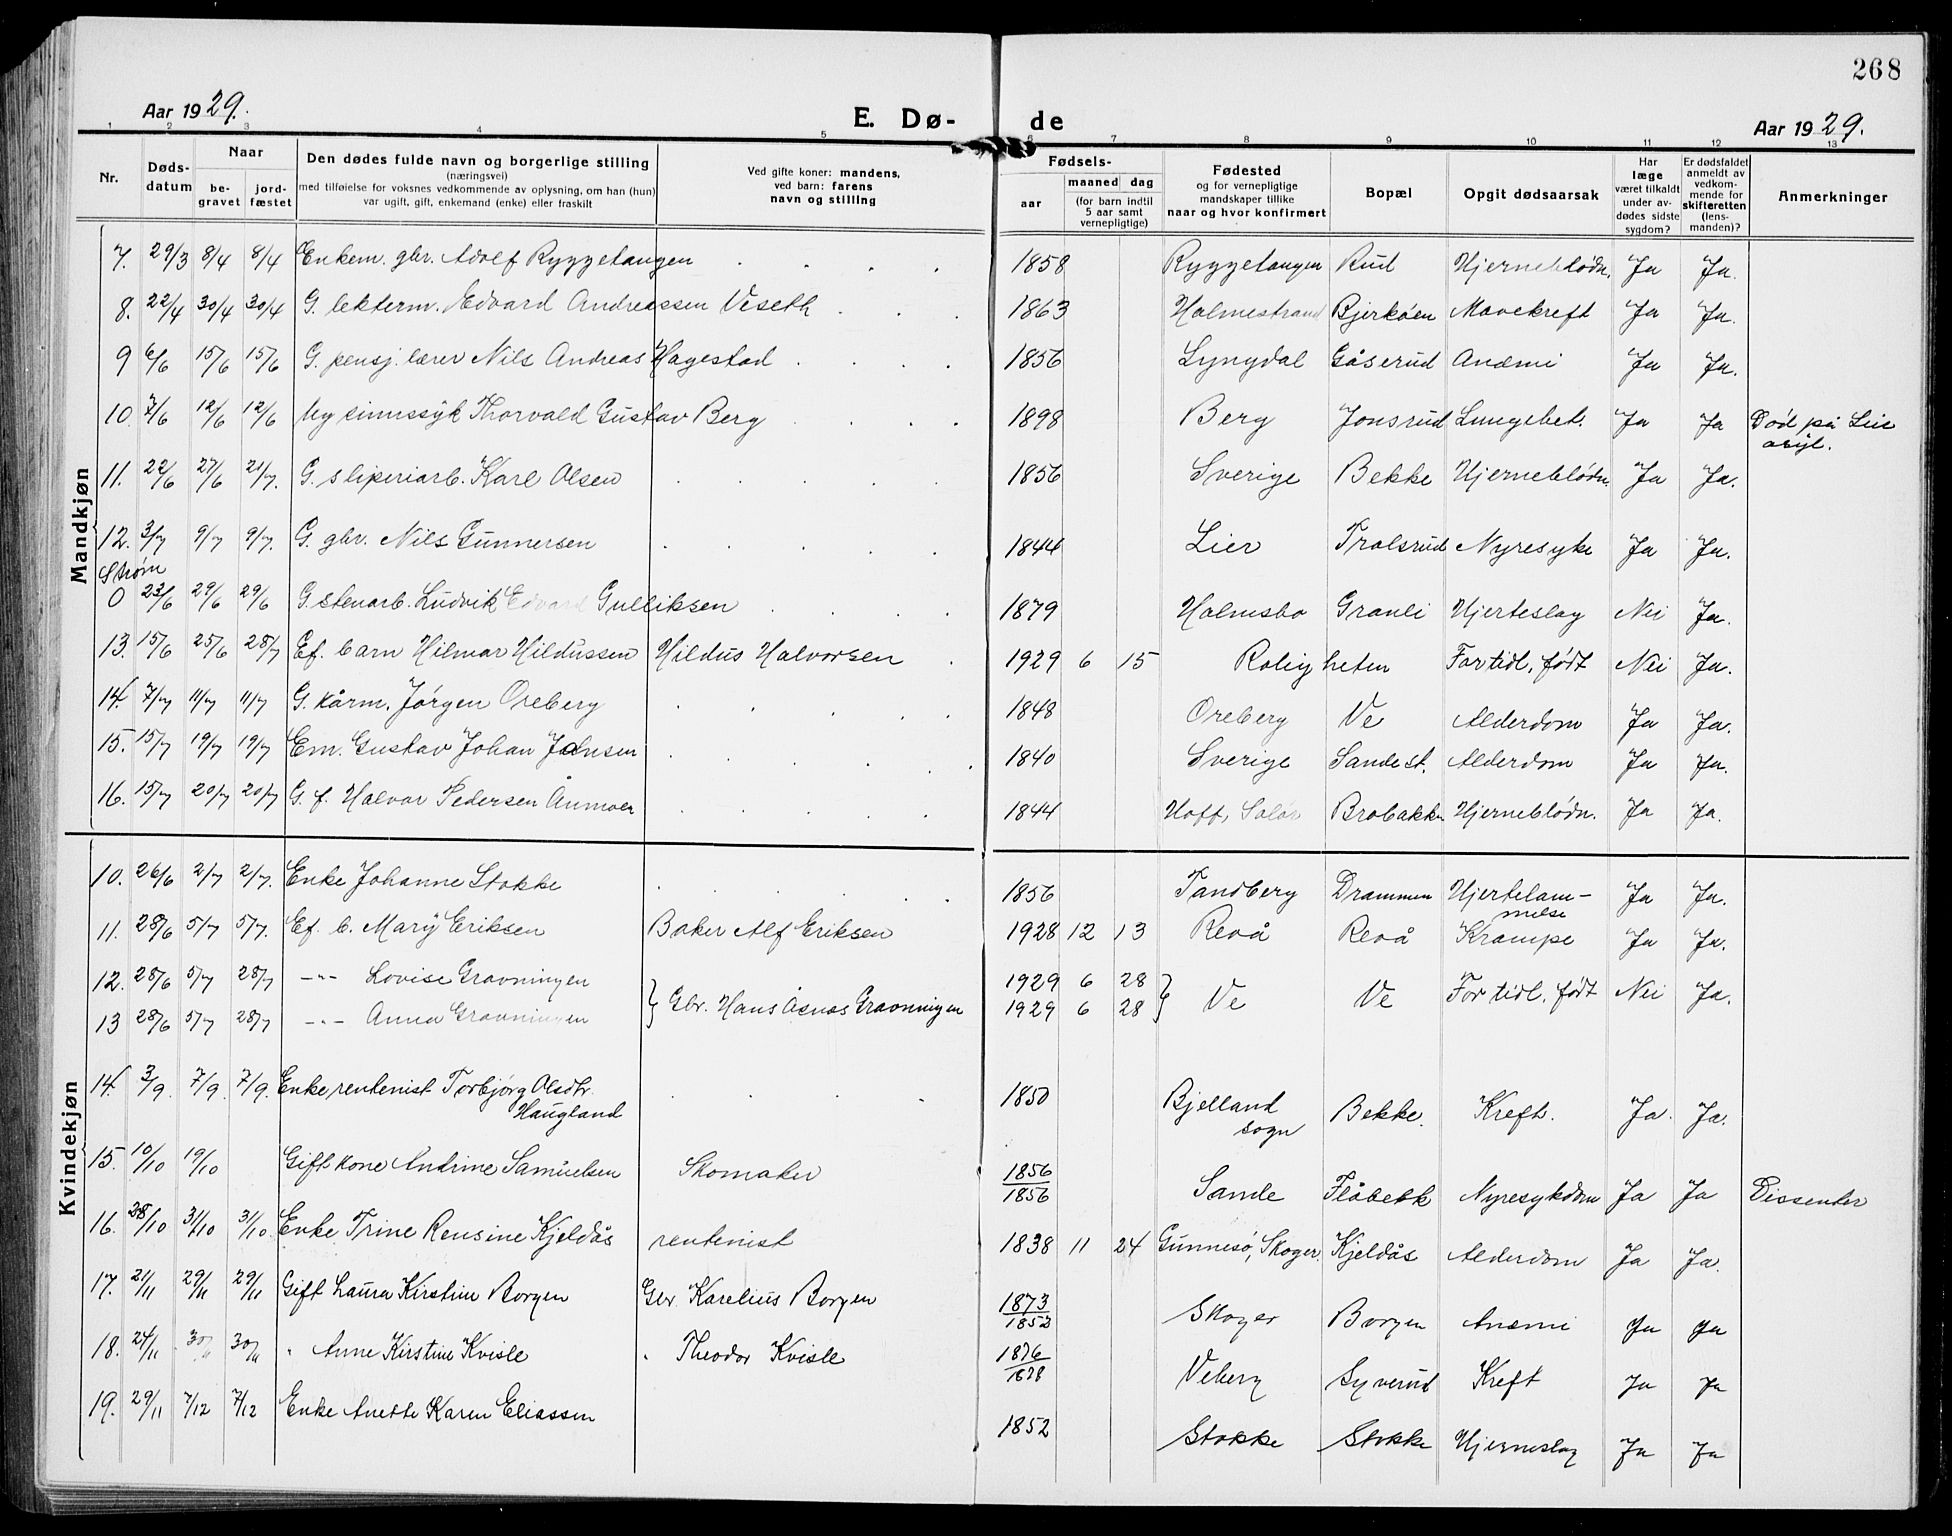 268
Aar 1929.
E. Dø-
de
Aar 1929.
1 2 3 4 5 6 7 8 9 10 11 12 13
Nr.
Døds-
datum
Naar
be-
gravet
jord-
fæstet
Den dødes fulde navn og borgerlige stilling
(næringsvei)
med tilføielse for voksnes vedkommende av oplysning, om han (hun)
var ugift, gift, enkemand (enke) eller fraskilt
Ved gifte koner: mandens,
ved barn: farens
navn og stilling
Fødsels-
aar
maaned dag
(for barn indtil
5 aar samt
vernepligtige)
Fødested
og for vernepligtige
mandskaper tillike
naar og hvor konfirmert
Bopæl
Opgit dødsaarsak
Har
læge
været tilkaldt
under av-
dødes sidste
sygdom?
Er dødsfaldet
anmeldt av
vedkom-
mende for
skifteretten
(lens-
manden)?
Anmerkninger
Mandkjøn
7. 29/3 8/4 8/4 Enkem. gbr. Adolf Ryggetangen 1858 Ryggetangen Rud Hjerneblødn. Ja Ja.
8. 22/4 30/4 30/4 G. lekterm. Edvard Andreassen Veseth 1863 Holmestrand Bjerkøen Mavekreft Ja Ja.
9 6/6 15/6 15/6 G. pensj. lærer Nils Andreas Hagestad 1856 Lyngdal Gåserud Anæmi Ja Ja.
10. 7/6 12/6 12/6 Ug sinnssyk Thorvald Gustav Berg 1898 Berg Jonsrud Lungebet. Ja Ja Død på Lier
asyl.
11. 22/6 27/6 21/7. G. sliperiarb. Karl Olsen 1856 Sverige Bekke Hjerneblødn. Ja Ja.
12. 3/7 9/7 9/7. G. gbr. Nils Gunnersen 1844 Lier Trolsrud Nyresyke Ja Ja.
Strøm
0 23/6 29/6 29/6 G. stenarb. Ludvik Edvard Gulliksen 1879 Holmsbo Granli Hjerteslag Nei Ja.
13. 15/6 25/6 28/7 Ef. barn Hilmar Hildussen Hildus Halvorsen 1929 6 15 Roligheten For tidl. født Nei Ja.
14. 7/7 11/7 11/7 G. kårm. Jørgen Oreberg 1848 Oreberg Ve Alderdom Ja Ja.
15. 15/7 19/7 19/7 Em. Gustav Johan Johnsen 1840 Sverige Sande st. Alderdom Ja Ja.
16. 15/7 20/7 20/7 G. f. Halvor Pedersen Ånmoen 1844 Hoff, Solør Brobakken Hjerneblødn. Ja Ja.
Kvindekjøn
10. 26/6 2/7 2/7. Enke Johanne Stokke 1856 Tandberg Drammen Hjertelam-
melse Ja Ja.
11. 28/6 5/7 5/7. Ef. b. Mary Eriksen Baker Alf Eriksen 1928 12 13 Revå Revå Krampe Ja Ja.
12. 28/6 5/7 28/7 -"- Lovise Gravningen 1929 6 28
} Gbr. Hans Åsnæs Gravningen } Ve Ve For tidl. født Nei Ja.
13 28/6 5/7 28/7 -"- Anna Gravningen 1929 6 28
14. 3/9. 7/9. 7/9. Enke rentenist Torbjørg Olsdtr. 1850 Bjelland
Haugland sogn Bekke. Kreft. Ja. Ja.
15. 10/10 19/10 Gift kone Andrine Samuelsen Skomaker 1856/1856 Sande Flåbekk Nyresykdom Ja Ja Dissenter
16. 28/10 31/10 31/10. Enke Trine Rensine Kjeldås rentenist 1838 11 24 Gunnesø, Skoger. Kjeldås Alderdom Ja Ja.
17. 21/11 29/11 29/11 Gift Laura Kirstine Borgen Gbr. Karelius Borgen 1873/1852 Skoger Borgen Anæmi Ja Ja
18. 24/11 30/11 30/11 " Anne Kirstine Kvisle " Theodor Kvisle 1876/1878 Veberg Syverud Kreft Ja Ja
19. 29/11 7/12 7/12 Enke Anette Karen Eliassen 1852 Stokke Stokke Hjerneslag Ja Ja